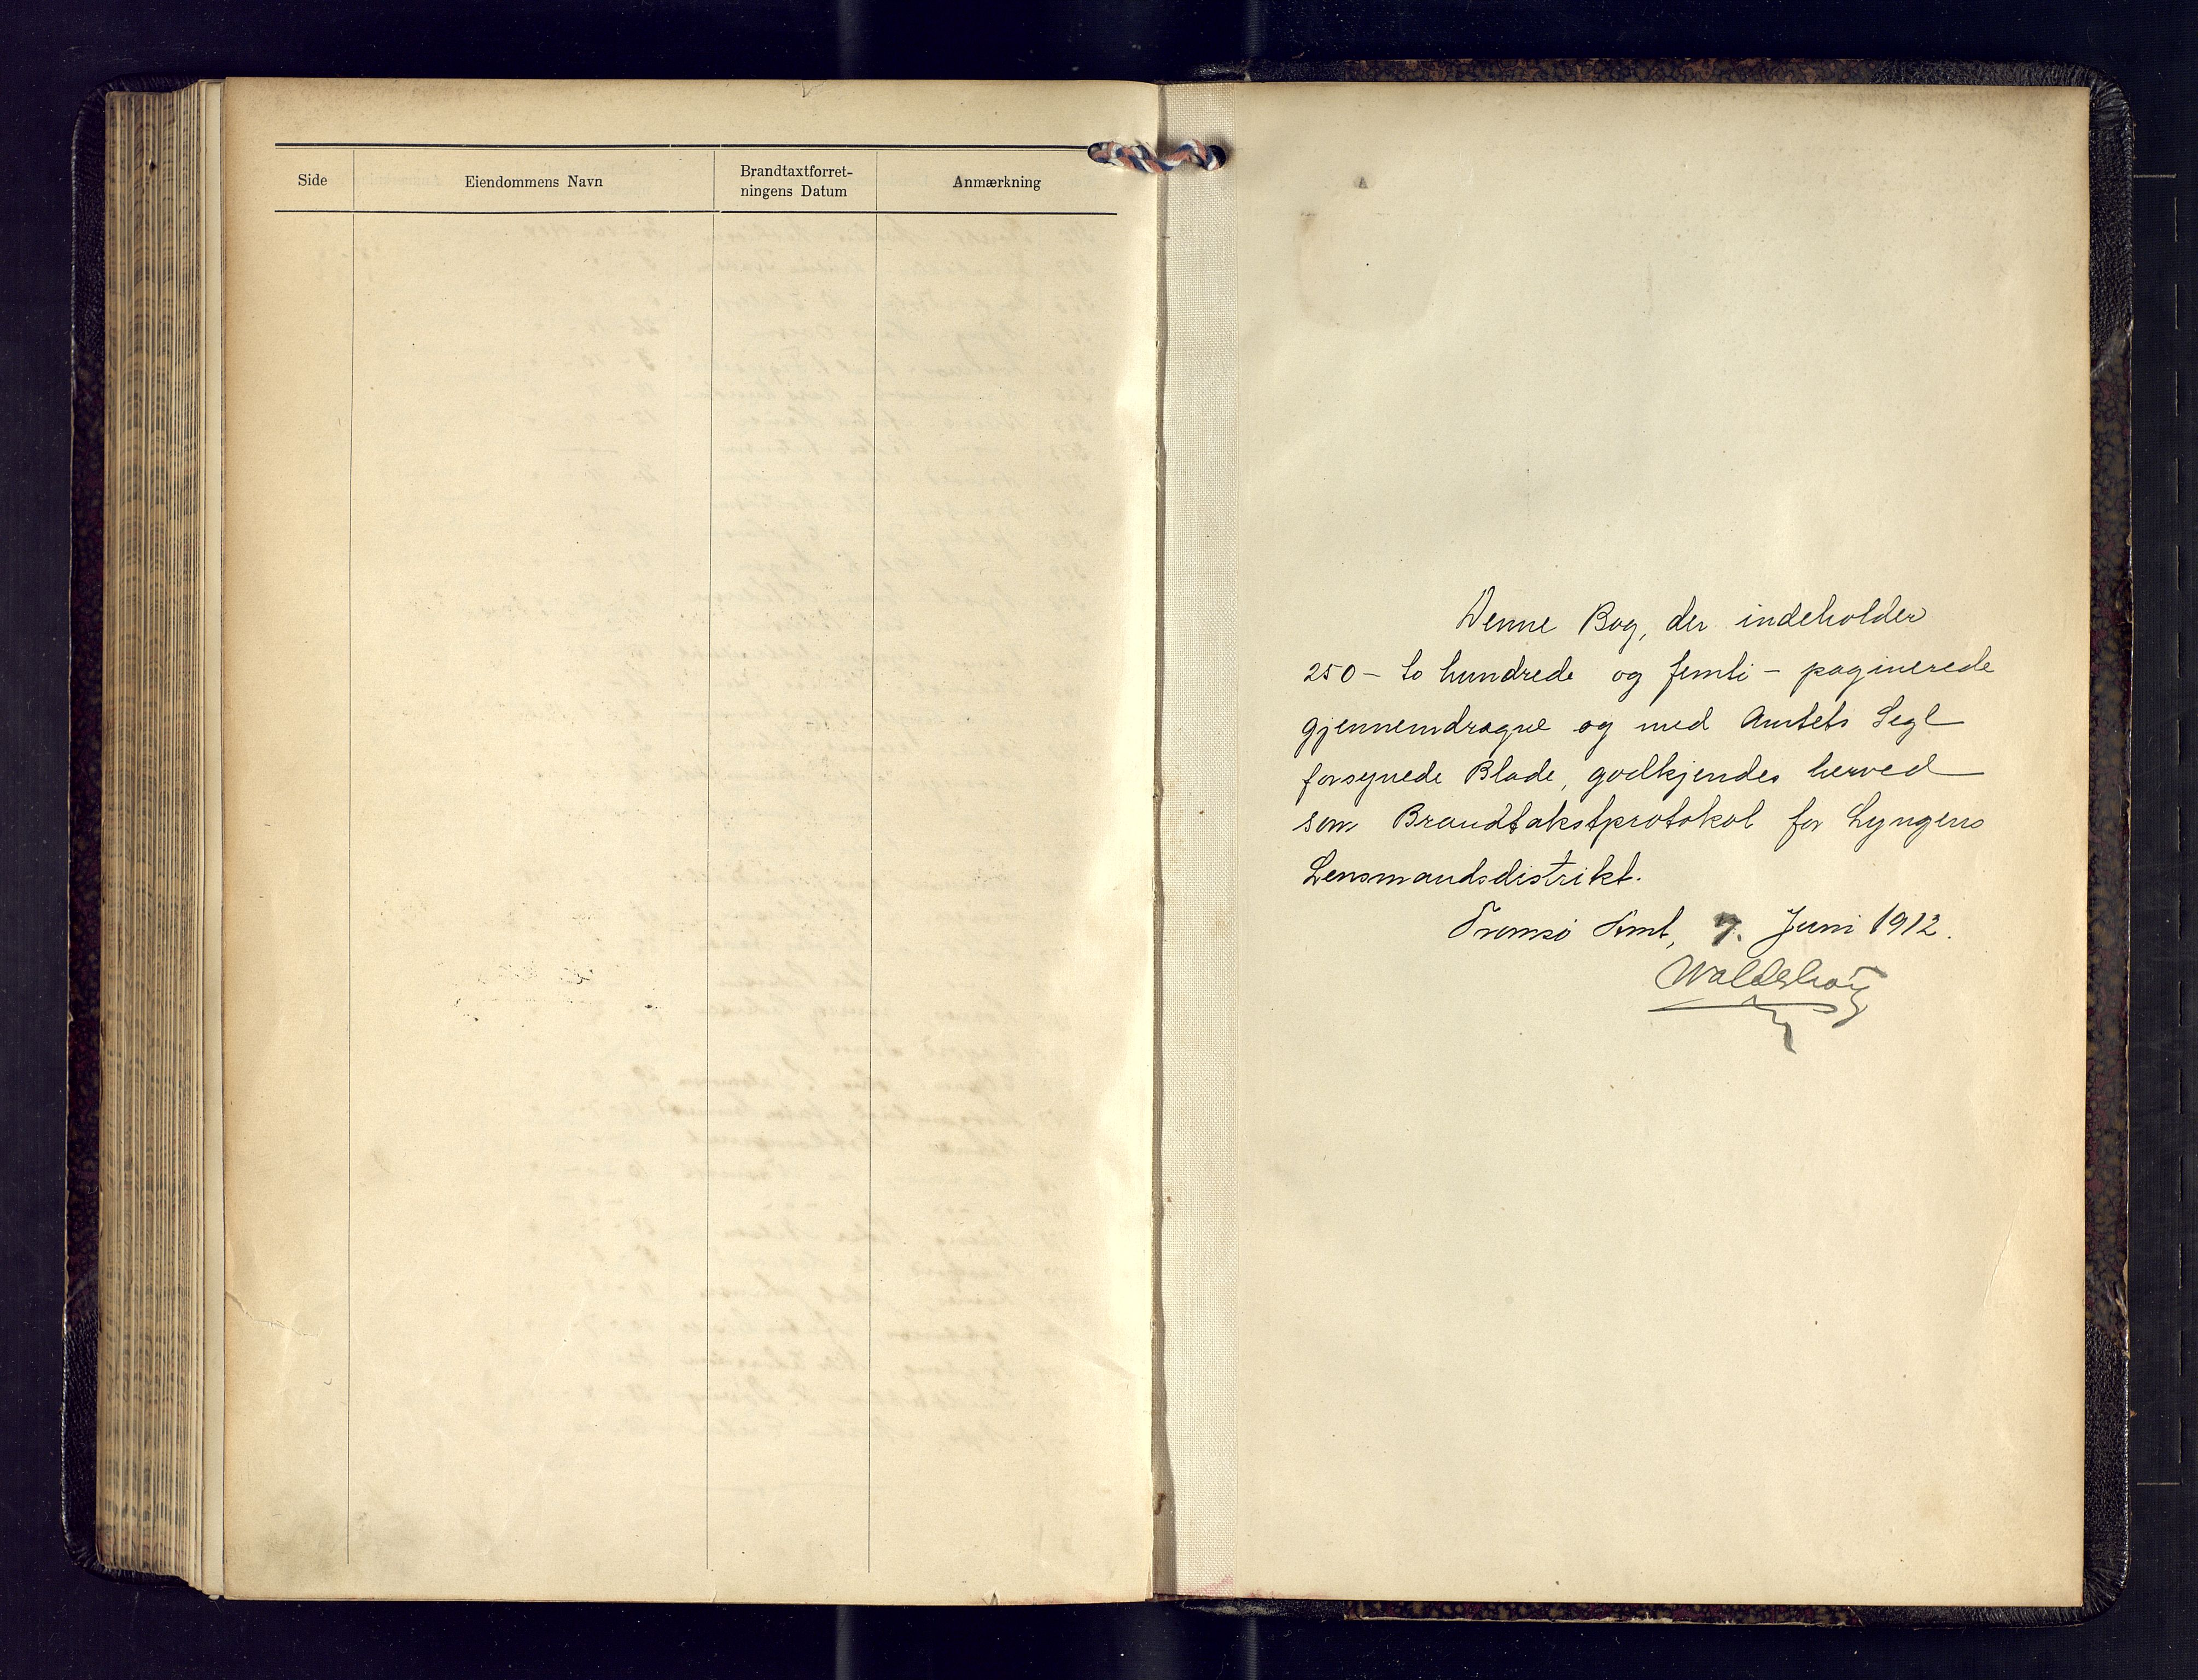 Side Eiendommens Navn Brandtaxtforret- Anmærkning
ningens Datum
Denne Bog, der indeholder
250 - to hundrede og femti - paginerede
gjennemdragne og med Amtets Segl
forsynede Blade, godkjendes herved
som Brandtakstprotokol for Lyngens
Lensmandsdistrikt.
Tromsø Amt, 7. Juni 1912.